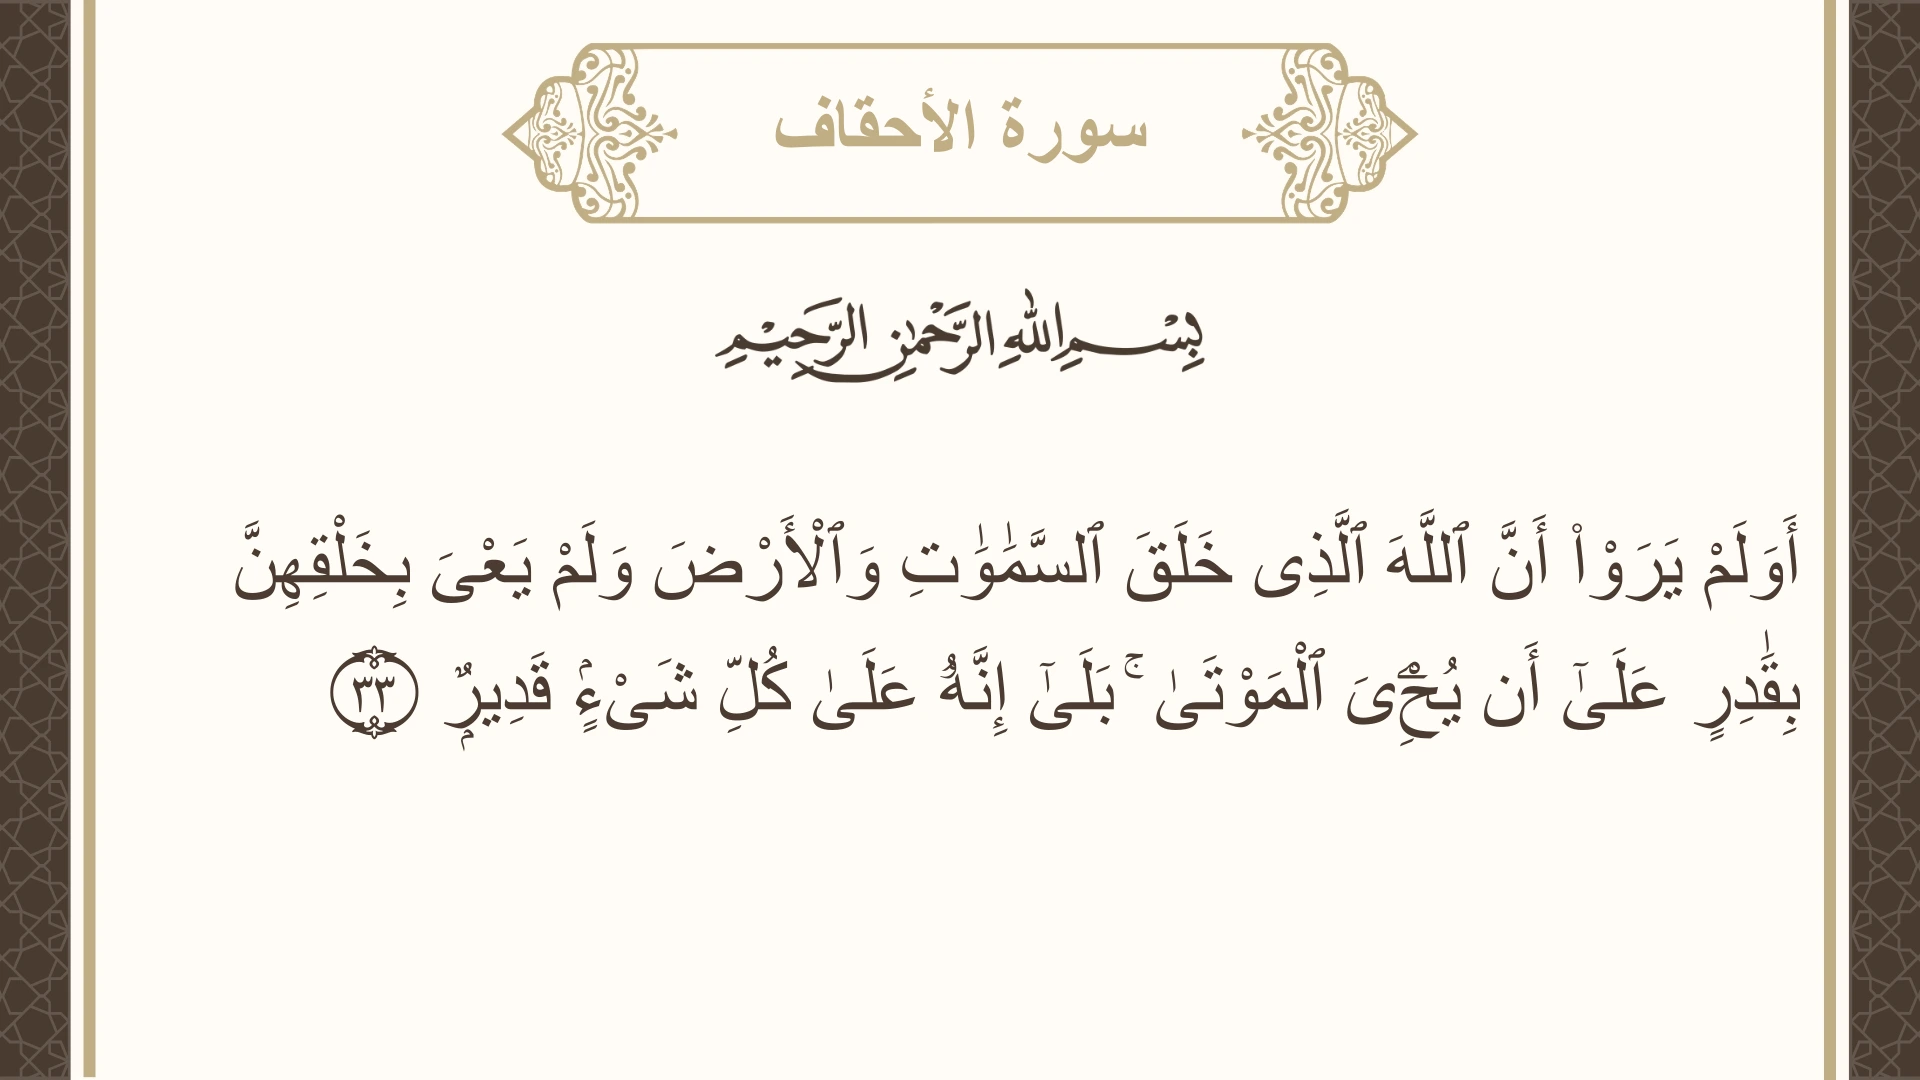 سورة الأحقاف
بِسْمِ اللهِ الرَّحْمٰنِ الرَّحِيْمِ
أَوَلَمْ يَرَوْا۟ أَنَّ ٱللَّهَ ٱلَّذِى خَلَقَ ٱلسَّمَٰوَٰتِ وَٱلْأَرْضَ وَلَمْ يَعْىَ بِخَلْقِهِنَّ
بِقَٰدِرٍ عَلَىٰٓ أَن يُحْۦِىَ ٱلْمَوْتَىٰ ۚ بَلَىٰٓ إِنَّهُۥ عَلَىٰ كُلِّ شَىْءٍۢ قَدِيرٌۭ ٣٣